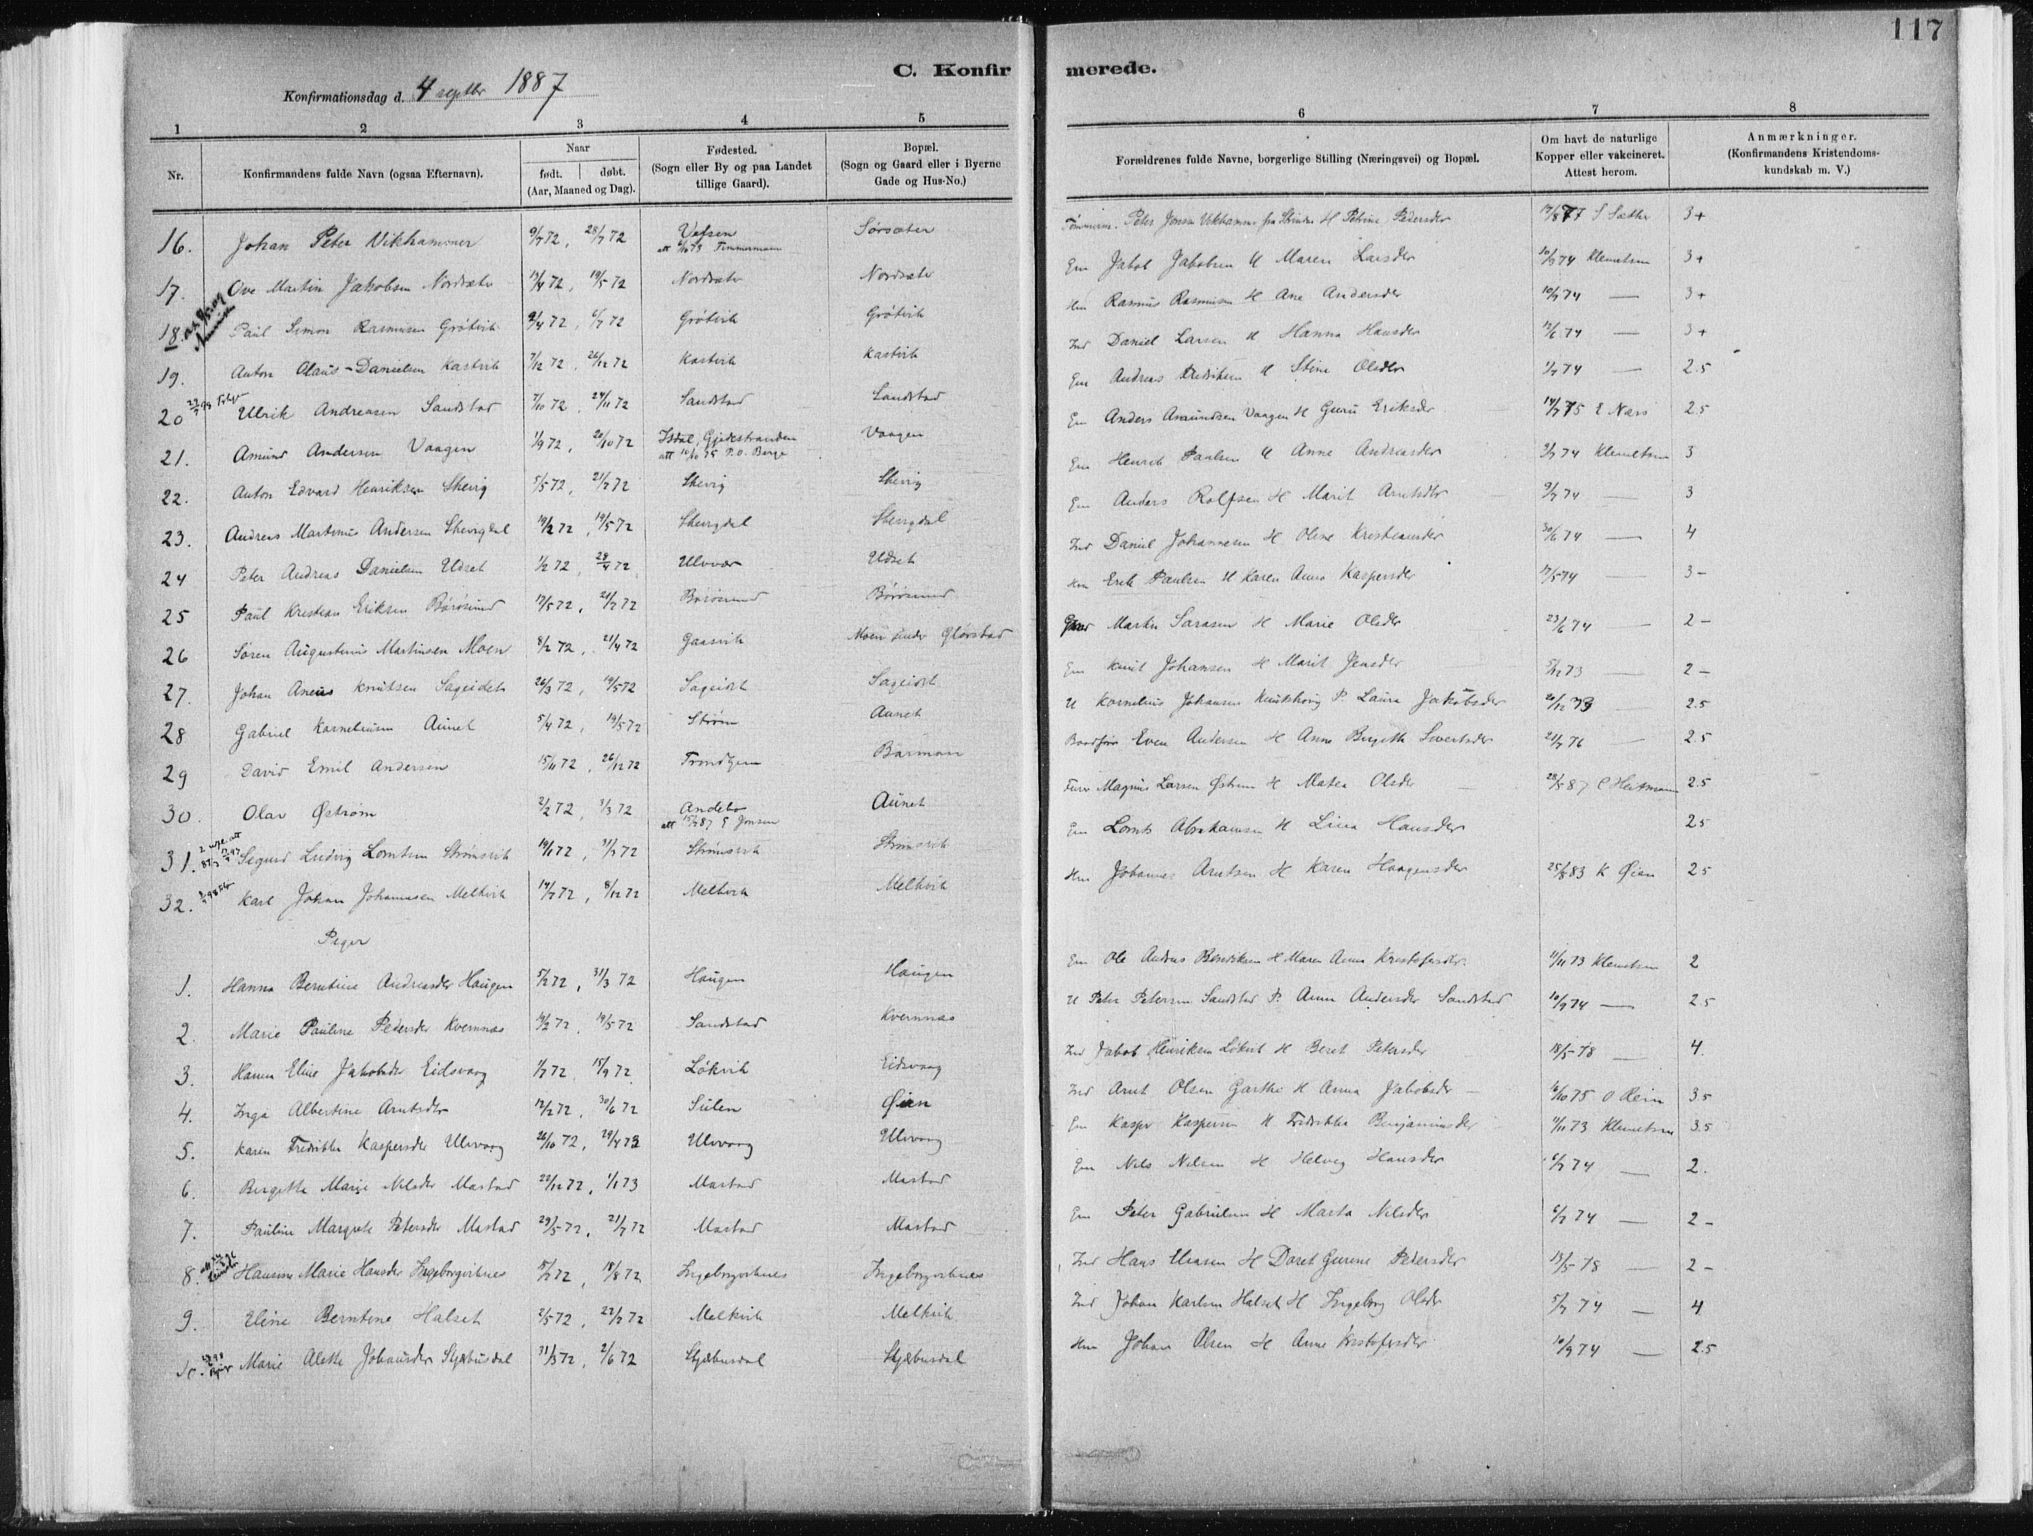 117
C. Konfir merede.
Konfirmationsdag d. 4 septbr 1887
1 2 3 4 5 6 7 8
Nr.
Konfirmandens fulde Navn (ogsaa Efternavn).
Naar
født. døbt.
(Aar, Maaned og Dag).
Fødested.
(Sogn eller By og paa Landet
tillige Gaard).
Bopæl.
(Sogn og Gaard eller i Byerne
Gade og Hus-No.)
Forældrenes fulde Navne, borgerlige Stilling (Næringsvei) og Bopæl.
Om havt de naturlige
Kopper eller vakcineret.
Attest herom.
Anmærkninger.
(Konfirmandens Kristendoms-
kundskab m. V.)
16. Johan Peter Vikhammer 9/7 72, 28/7 72 Vefsen Sørsæter Peter Jonsen Vikhammer fra Strinden H Petrine Pedersdr 3+
17. Ove Martin Jakobsen Nordsæter 13/4 72, 19/5 72 Nordsæter Nordsæter Em Jakob Jakobsen H Maren Larsdr 10/9 74 Klemetsen 3+
18. Paul Simon Rasmusen Grøtvik 2/4 72, 6/7 72 Grøtvik Grøtvik Hm Rasmus Rasmusen H Ane Andersdr 10/9 74 — 3+
19. Anton Olaus Danielsen Kastvik 7/12 72, 26/12 72 Kastvik Kastvik Ind Daniel Larsen H Hanna Hansdr 12/6 74 — 3+
20 Ulrik Andreasen Sandstad 7/10 72, 24/11 72 Sandstad Sandstad Em Andreas H Stine Olsdr 1/7 74 — 2.5
21. Amund Andersen Vaagen 1/9 72, 20/10 72 Isdal, Gjedestranden Vaagen Em Anders Amundsen Vaagen H Guru Eriksdr 14/7 75 E Næss 2.5
22. Anton Edvard Henriksen Skevig 5/5 72, 21/7 72 Skevig Skevig Em Henrik Paulsen H Anne Andreasdr 2/7 74 Klemetsen 3
23. Andreas Martinus Andersen Skevigdal 19/2 72, 19/5 72 Skevigdal Skevigdal Em Anders Rolfsen H Marit Arntsdtr 9/7 74 — 3
24 Peter Andreas Danielsen Udset 1/2 72, 28/4 72 Ulvvær Udset Ind Daniel Johannesen H Oline Kristensdr 30/6 74 — 4
25 Paul Kristian Eriksen Børøsund 12/5 72, 21/7 72 Børøsund Børøsund Hm Erik Paulsen H Karen Anna Kaspersdr 17/5 74 — 3-
26 Søren Augustinus Martinsen Moen 8/2 72, 21/4 72 Gaasvik Moen under Glørstad Martin Sørasen H Marie Olsdr 23/6 74 — 2-
27. Johan Aneus Knutsen Sageidet 26/3 72, 19/5 72 Sageidet Sageidet Em Knut Johansen H Marit Jensdr 2-
28 Gabriel Korneliusen Aunet 5/4 72, 19/5 72 Strøm Aunet U Kornelius Johansen P. Laura Jakobsdr 20/12 73 — 2.5
29 David Emil Andersen 15/11 72, 26/12 72 Trondhjem Bårman Even Andersen H Anne Birgitte Sivertsdr 21/7 76 — 2.5
30. Olav Østrøm 2/2 72, 1/3 72 Andebo Aunet Magnus Larsen Østrøm H Matea Olsdr 28/5 87 C Hertmann 2.5
31. Sigurd Ludvig Lorntsen Strømsvik 19/1 72, 31/3 72 Strømsvik Strømsvik Em Lornts Abrahamsen H Lina Hansdr 25
32. Karl Johan Johannesen Melkvik 14/7 72, 8/12 72 Melkvik Melkvik Hm Johannes Arntsen H Karen Haagensdr 25/8 83 K Øien 25
Piger
1. Hanna Berntine Andreasdr Haugen 5/2 72, 31/3 72 Haugen Haugen Em Ole Andreas H Maren Anna Kristofersdr. 11/11 73 Klemetsen 2
2. Marie Pauline Pedersdr Kvernnæs 19/2 72, 19/5 72 Sandstad Kvernnæs U Peter Petersen Sandstad P. Anna Andersdr Sandstad 10/9 74 — 25
3. Hanna Eline Jakobsdr Eidsvaag 1/7 72 15/9 72 Løkvik Eidsvaag Ind Jakob Henriksen Løkvik H Beret Petersdr 18/5 78 — 4.
4. Inga Albertine Arntsdr 12/2 72, 30/6 72 Sulen Øien Ind Arnt Olsen Garthe H Anna Jakobsdr 6/10 75 O Rein 35
5. Karen Fredrikke Kaspersdr Ulvvaag 26/10 72, 29/4 73 Ulvvaag Ulvvaag Em Kasper Kaspersen H Fredrikke Benjaminsdr 11/11 73 Klemetsen 3.5
6. Bergitte Marie Nilsdr Mastad 22/12 72, 1/1 73 Mastad Mastad Em Nils Nilsen H Helvig Hansdr 6/7 74 — 2.
7. Pauline Margrete Petersdr Mastad 29/5 72, 21/7 72 Mastad Mastad Em Peter Gabrielsen H Marta Nilsdr 6/7 74 — 2-
8. Hansine Marie Hansdr Ingeborgviknes 5/7 72, 18/8 72 Ingeborgviknes Ingeborgviknes Ind Hans H Doret Gurine Pedersdr 13/5 78 — 2-
9. Eline Berntine Halset 2/5 72, 22/7 72 Melkvik Melkvik Ind Johan Karlsen Halset H Ingeborg Olsdr 5/7 74 — 4
10. Marie Alette Johansdr Skjæbusdal 31/3 72, 2/6 72 Skjæbusdal Skjæbusdal Hm Johan Olsen H Anne Kristofersdr 10/9 74 — 2.5